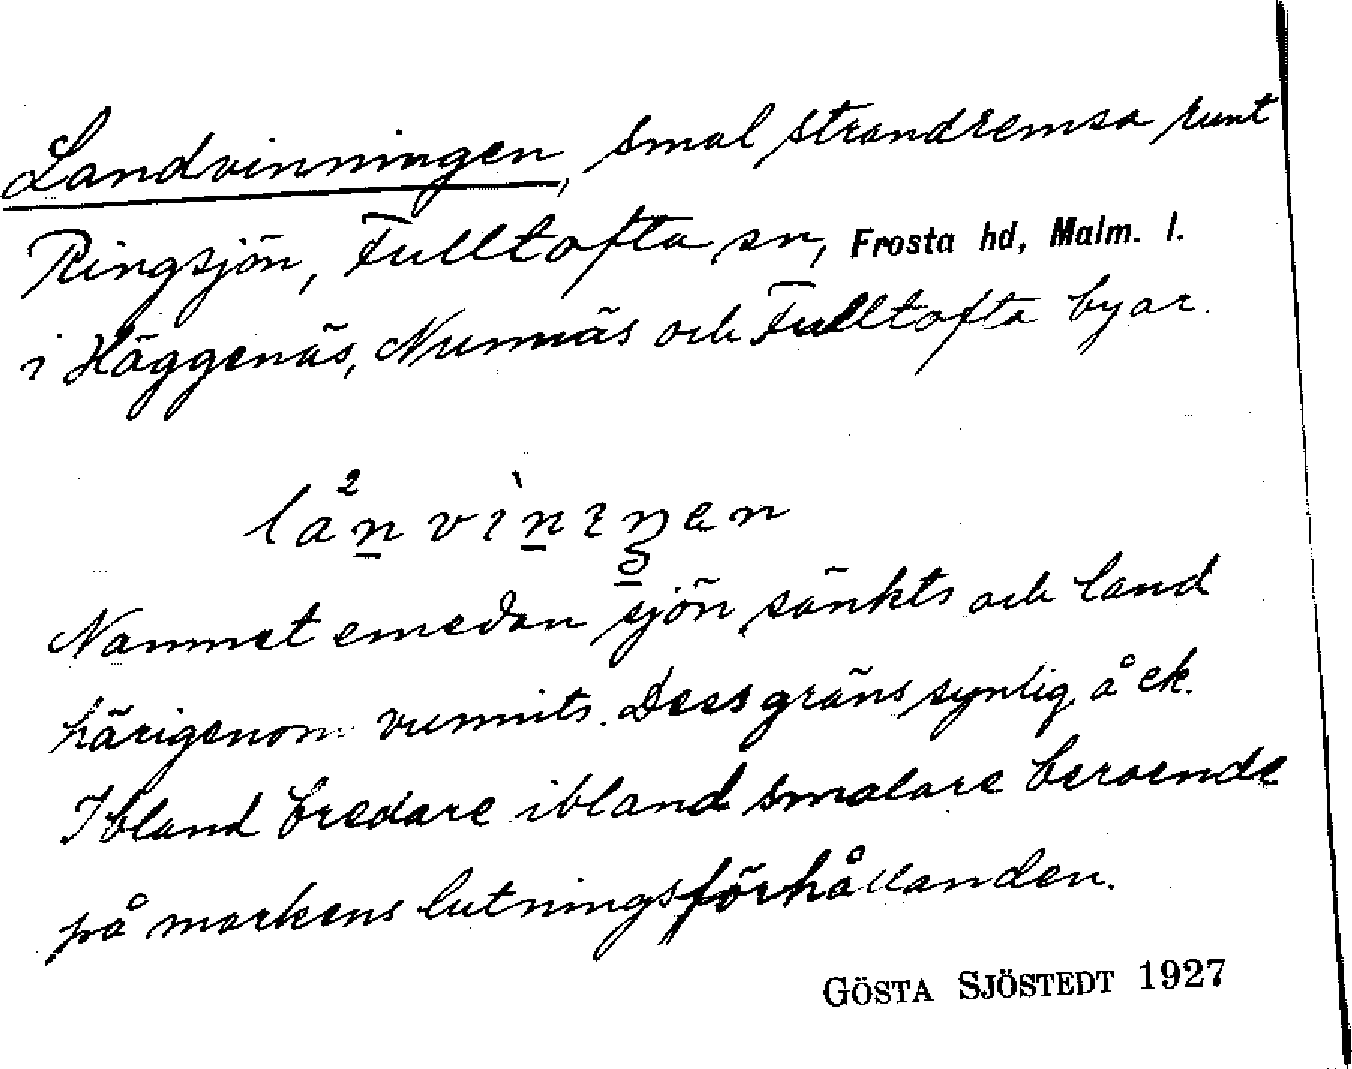 Landvinningen, smal strandremsa runt
Ringsjön, Fulltofta sn, Frosta hd, Malm. l.
i Häggenäs, Nunnäs och Fulltofta byar.
Namnet emedan sjön sänkts och land
härigenom vunnits. Dess gräns synlig å ek.
Ibland bredare ibland smalare beroende
på markens lutningsförhållanden.
GÖSTA SJÖSTEDT 1927